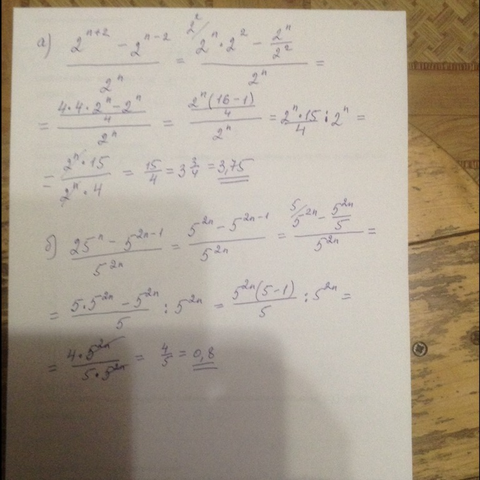 а) (2^(n+2) - 2^(n-2))/2^n = (2^2/ 2^n · 2^2 - 2^n/2^2)/2^n =
= ((4·4·2^n - 2^n)/4)/2^n = (2^n(16-1)/4)/2^n = 2^n·15/4 : 2^n =
= 2^n·15/2^n·4 = 15/4 = 3 3/4 = 3,75
б) (25^n - 5^(2n-1))/5^(2n) = (5^(2n) - 5^(2n-1))/5^(2n) = (5/ 5^(2n) - 5^(2n)/5)/5^(2n) =
= (5·5^(2n) - 5^(2n))/5 : 5^(2n) = 5^(2n)(5-1)/5 : 5^(2n) =
= 4·5^(2n)/5·5^(2n) = 4/5 = 0,8